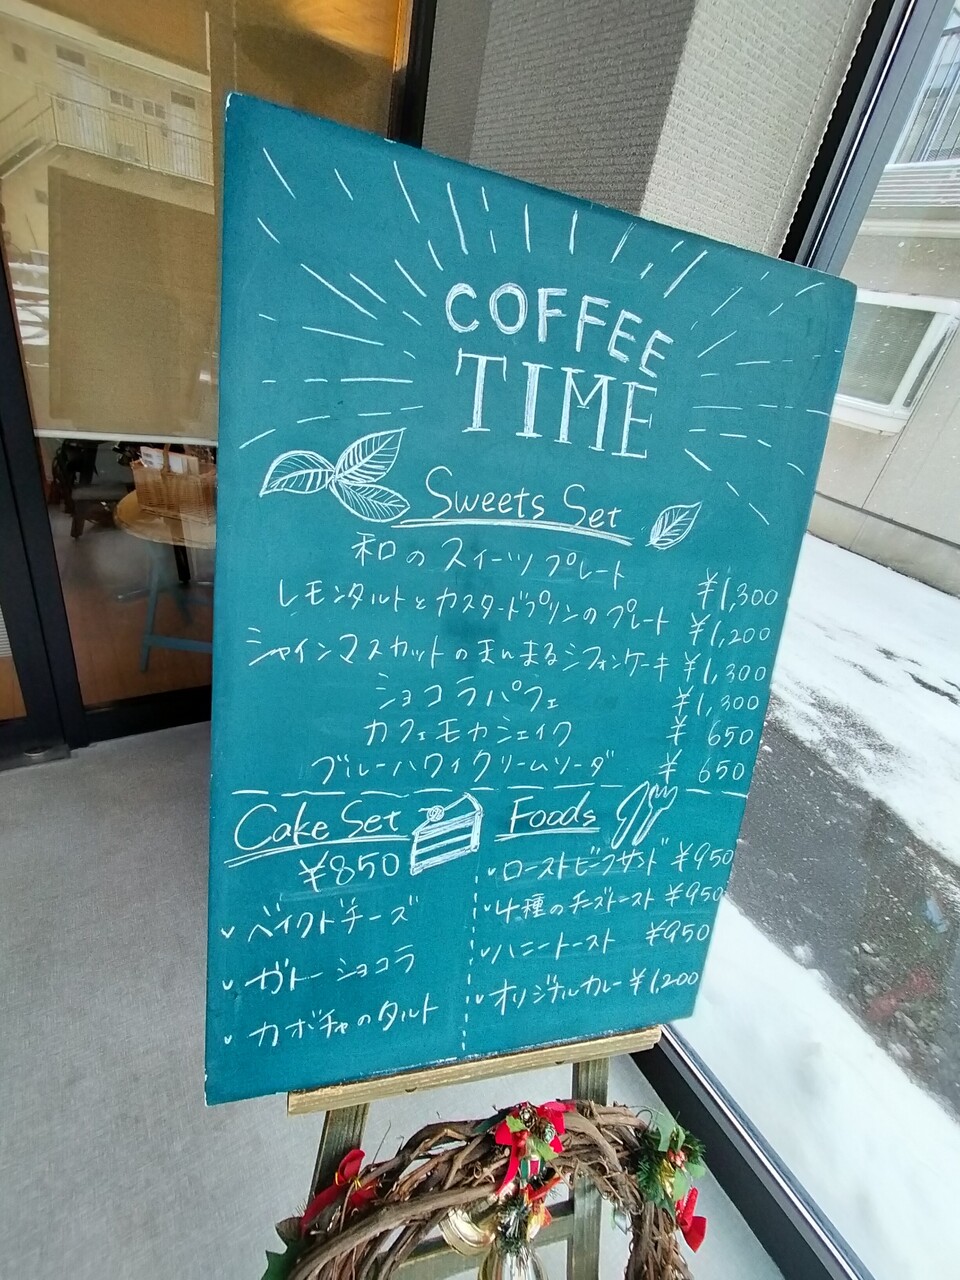 COFFEE
TIME
Sweets Set
和のスイーツプレート ¥1,300
レモンタルトとカスタードプリンのプレート ¥1,200
シャインマスカットのまんまるシフォンケーキ ¥1,300
ショコラパフェ ¥1,300
カフェモカシェイク ¥650
ブルーハワイクリームソーダ ¥650
Cake Set
¥850
・ベイクドチーズ
・ガトーショコラ
・カボチャのタルト
Foods
・ローストビーフサンド ¥950
・4種のチーズトースト ¥950
・ハニートースト ¥950
・オリジナルカレー ¥1,200